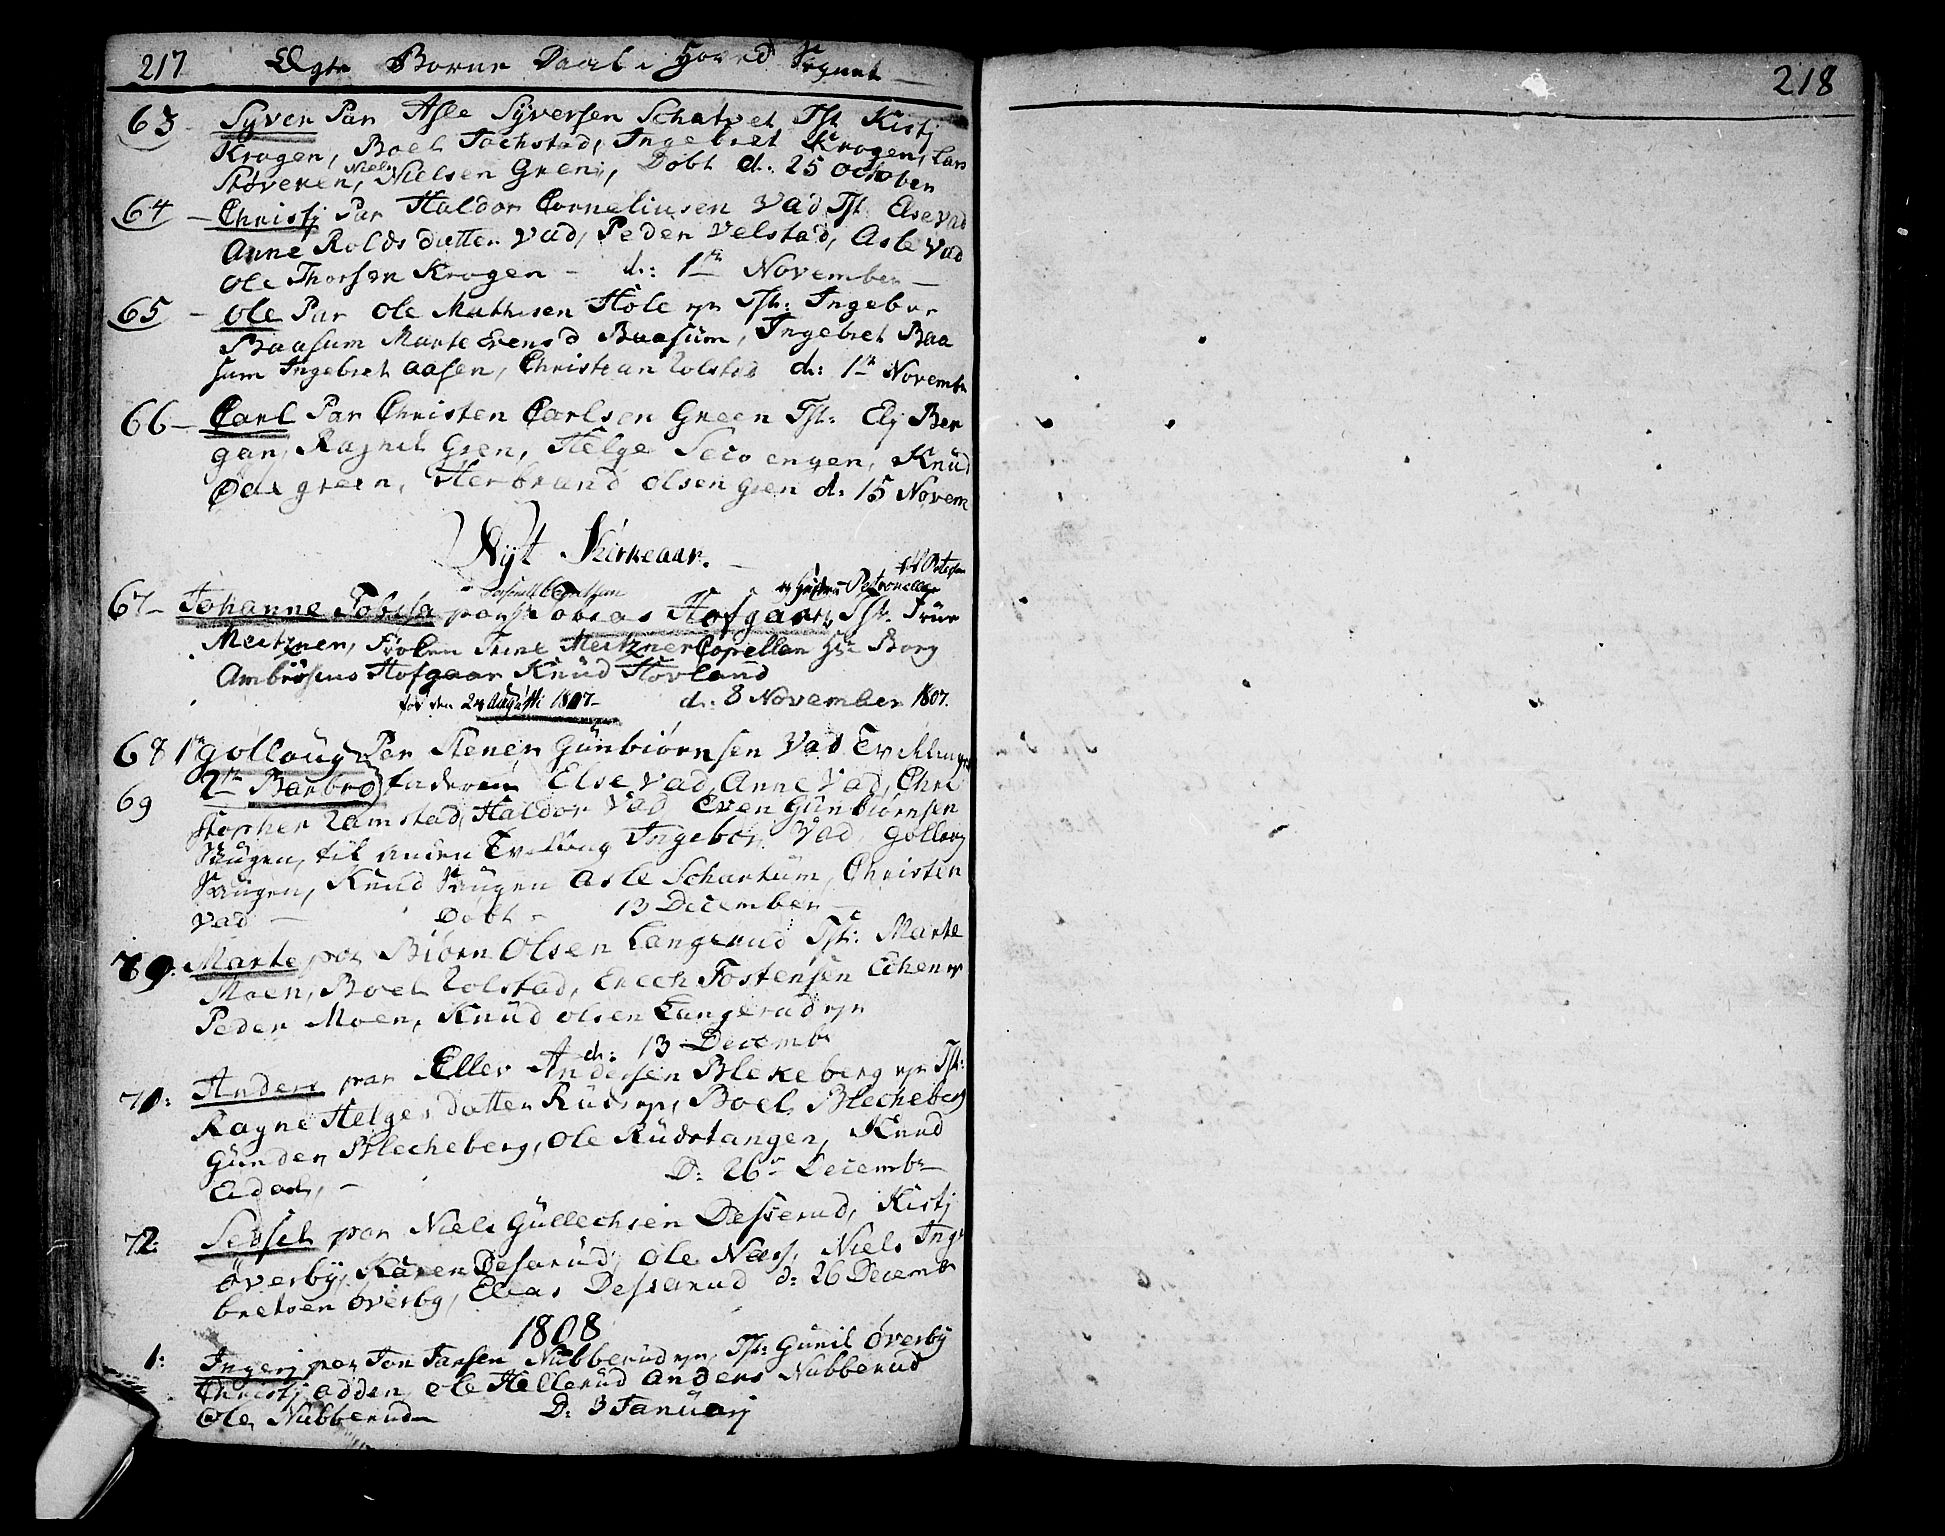 217 Ægte Børns Daab i Hoved Sognet
218
63 Syver Par Asle Syversen Schatvet Tst Kistj
Krogen, Boel Tochstad, Ingebret Krogen, Lars
Støveren, Niels Nielsen Gren, Døbt d. 25 october
64 - Christj Par Haldor Corneliusen Vad Tst. Else Vad
Anne Rolds datter Vad, Peder Velstad, Asle Vad
Ole Thorsen Krogen - d: 1te November -
65 - Ole Par Ole Mathisen Hole Tst: Ingebor
Baasum Marte Evensd Baasum, Ingebret Baa
sum Ingebret Aasen, Christian Tolstad d: 1te Novembr
66 - Carl Par Christen Carlsen Green Tst: Elj Ber
gan, Ragnil Gren, Helge engen, Knud
green, Herbrand Olsen Gren d: 15 Novem
Nyt Kirkeaar.
Petronelle
67 - Johanne Tobisa par Tobias Hofgaard, Tst. Frue
Meitzner, Frølen Trine Meitzner Capellan Hr Borg
Ambrosius Hofgaar Knud Hovland
før den 24 Augusti 1807 - d: 8 November 1807.
68 1te Gollaug Par Stener Günbiørnsen Vad
2te Barbro Faderen Else Vad, Anne Vad, Chri
69 stopher Ramstad, Haldor Vad Even Günbiørnsen
Haugen, til anden Tvelling Ingebor Vad, Gollaug
Haugen, Knud Haugen Asle Schartum, Christen
Vad - Døbt - 13 December -
Marte par Biørn Olsen Langerud Tst: Marte
Moen, Boel Tolstad, Erech Tostensen
Peder Moen, Knud olsen Langerud
d: 13 Decembr
71: Anders par Eller Andersen Blekeberg Tst:
Ragne Helgesdatter Rud, Boel Blecheberg
Günder Blecheberg, Ole Rudstangen, Knud
- D: 26de Decembr
72: Sedsel par Niels Güllechsen Desserud, Kistj
Øverby, Karen Deserud, Ole Næss, Niels Inge
bretsen øverby, Elias Desserud d: 26 Decembr
1808
1: Ingerj par Jon Jansen Nubberud Tst: Gunil Øverby
Christj odden, ole Hellerud anders Nubberud
Ole Nubberud D: 3 Januarj